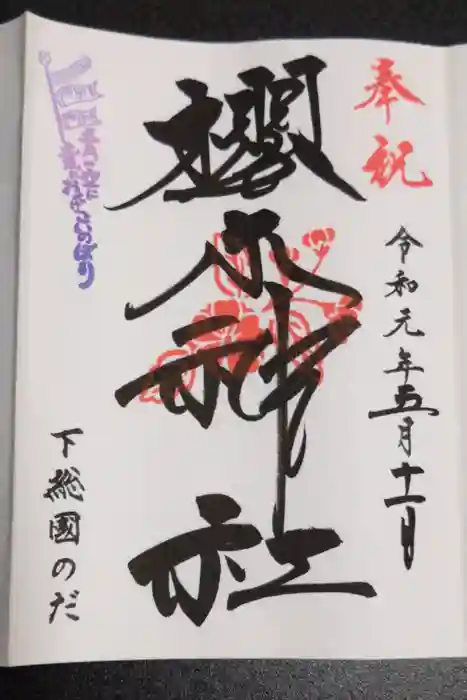 奉祝
令和元年五月十一日
櫻木神社
こいのぼり
下総國のだ